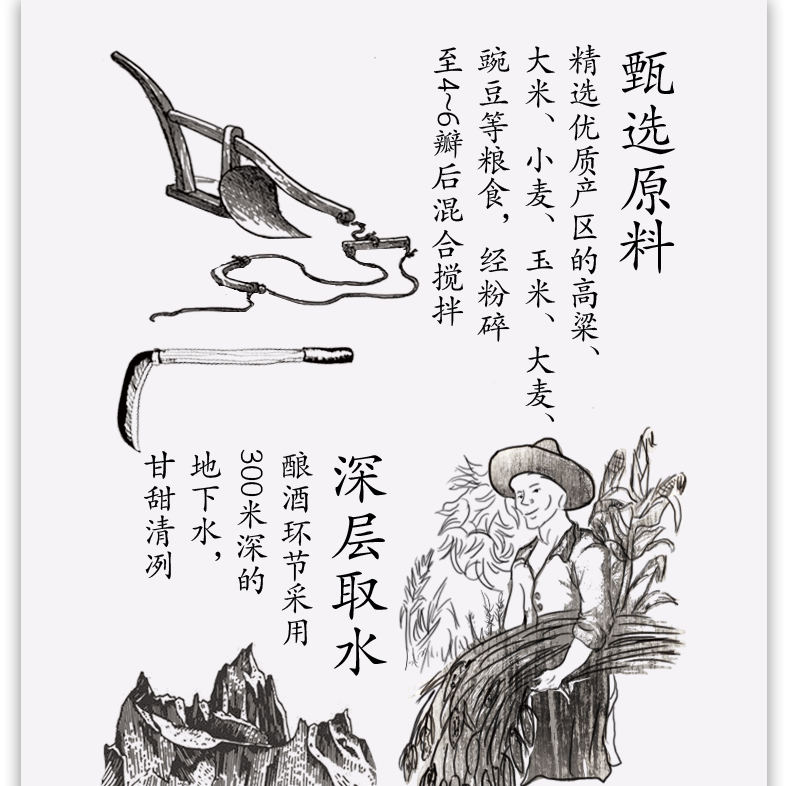 甄选原料
精选优质产区的高粱、
大米、小麦、玉米、大麦、
豌豆等粮食，经粉碎
至4~6瓣后混合搅拌
深层取水
酿酒环节采用
300米深的
地下水，
甘甜清冽